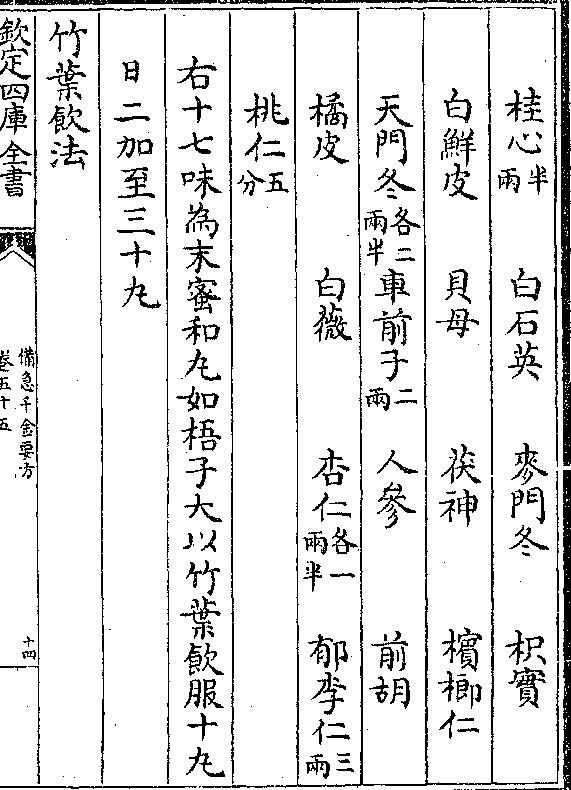 桂心半兩 白石英 麥門冬 枳實
白鮮皮 貝母 茯神 檳榔仁
天門冬各二兩半 車前子二兩 人參 前胡
橘皮 白薇 杏仁各一兩半 郁李仁三兩
桃仁五分
右十七味為末蜜和丸如梧子大以竹葉飲服十丸
日二加至三十丸
竹葉飲法
欽定四庫全書
備急千金要方
卷五十五
十四